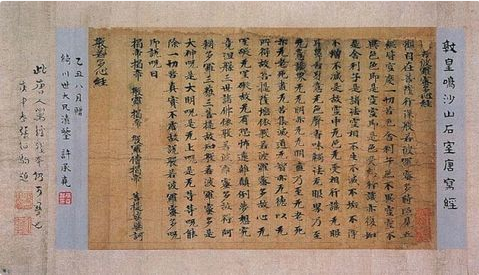 敦皇鳴沙山石室唐寫經
般若波羅蜜多心經
觀自在菩薩行深般若波羅蜜多時照見五
蘊皆空度一切苦厄舍利子色不異空空不
異色色即是空空即是色受想行識亦復如
是舍利子是諸法空相不生不滅不垢不淨
不增不減是故空中无色无受想行識无眼
耳鼻舌身意无色聲香味觸法无眼界乃至
无意識界无无明亦无无明盡乃至无老死
亦无老死盡无苦集滅道无智亦无得以无
所得故菩提薩埵依般若波羅蜜多故心无
罣礙无罣礙故无有恐怖遠離顛倒夢想究
竟涅槃三世諸佛依般若波羅蜜多故得阿
耨多羅三藐三菩提故知般若波羅蜜多是
大神呪是大明呪是无上呪是无等等呪能
除一切苦真實不虛故說般若波羅蜜多呪
即說呪曰
揭帝揭帝 般羅揭帝 般羅僧揭帝 菩提莎婆訶
般若多心經
乙丑八月贈
世大兄清鑒 許承堯
此唐人寫經